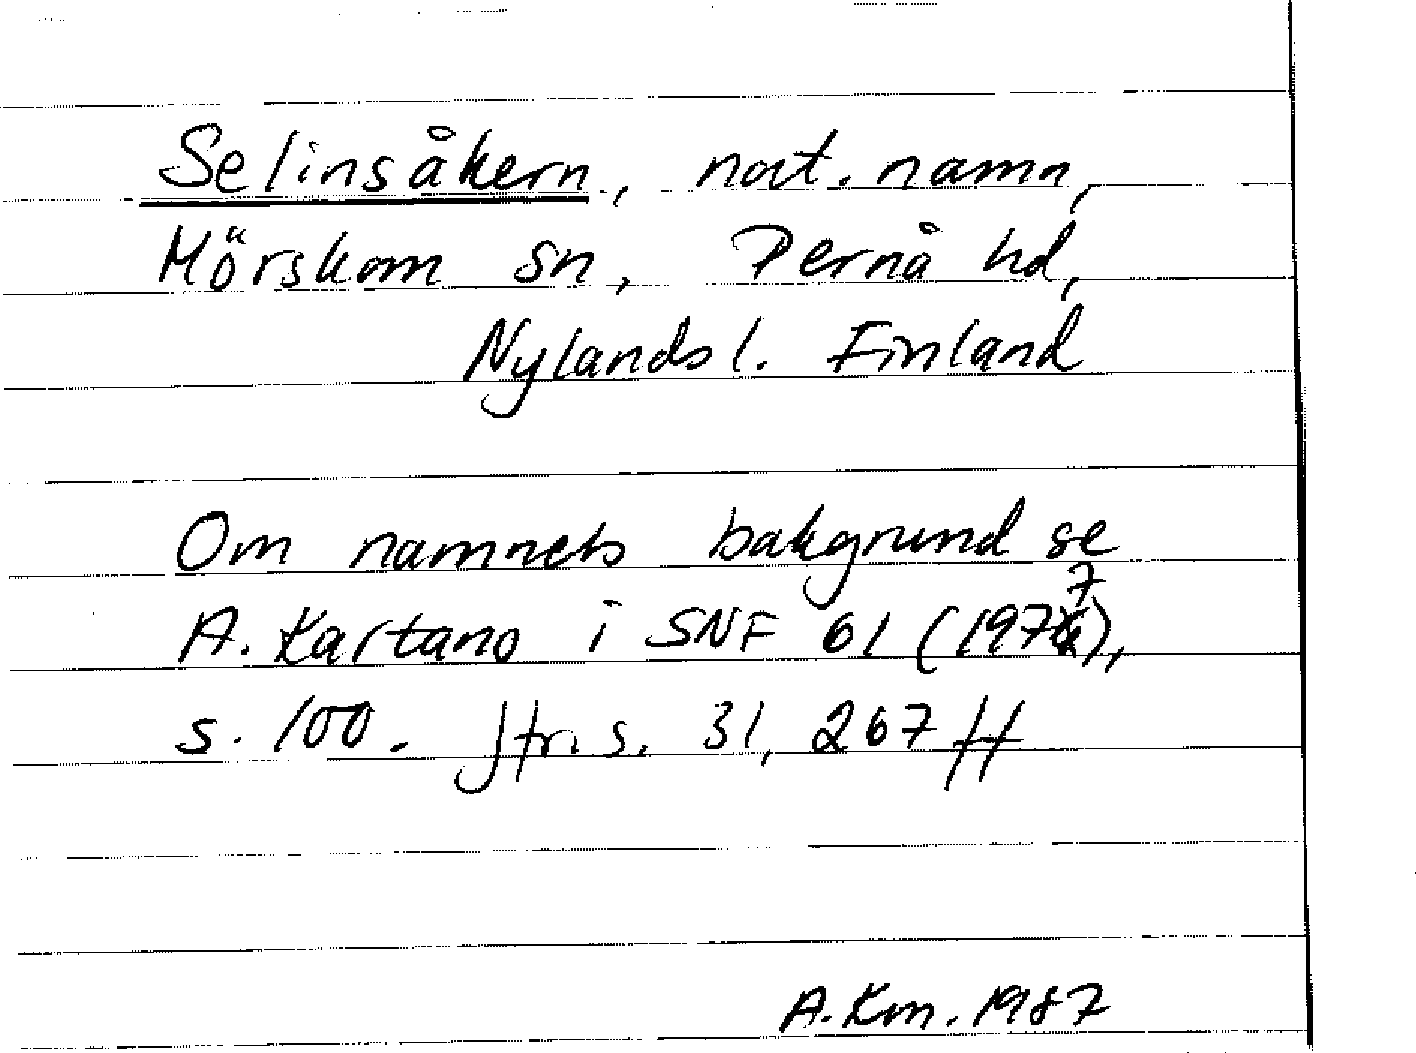 Selinsåkern, nat. namn,
Mörskom sn, Pernå hd,
Nylands l. Finland
Om namnets bakgrund se
A. Kartano i SNF 61 (1977),
s. 100. Jfr s. 31, 267 ff
A. Km. 1987